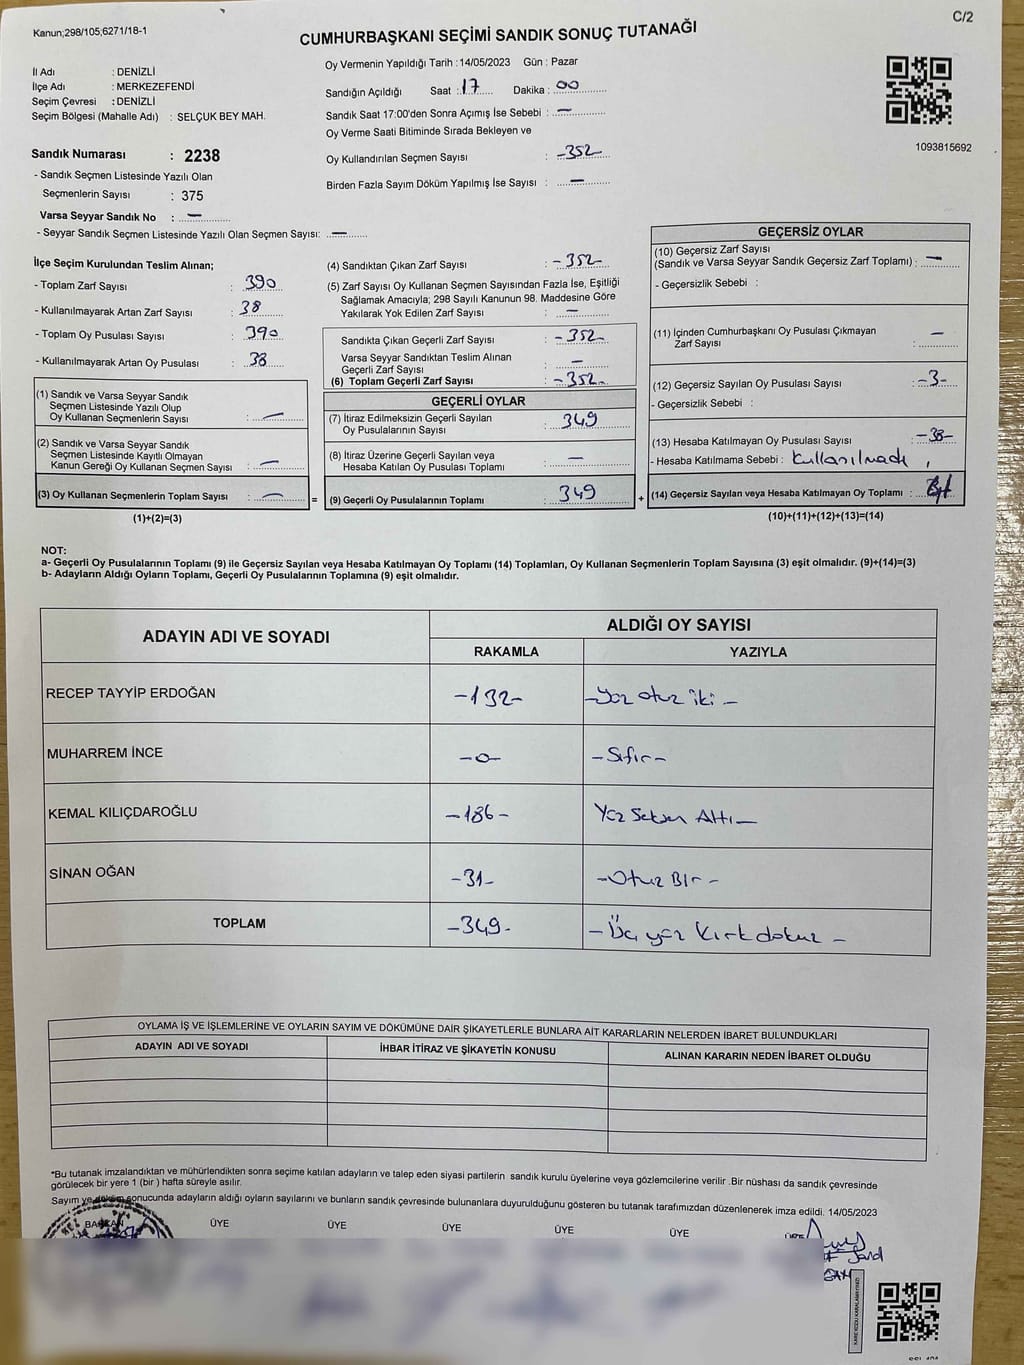 Kanun;298/105;6271/18-1
C/2
CUMHURBAŞKANI SEÇİMİ SANDIK SONUÇ TUTANAĞI
İl Adı : DENİZLİ
İlçe Adı : MERKEZEFENDİ
Seçim Çevresi : DENİZLİ
Seçim Bölgesi (Mahalle Adı) : SELÇUK BEY MAH.
Sandık Numarası : 2238
- Sandık Seçmen Listesinde Yazılı Olan
Seçmenlerin Sayısı : 375
Varsa Seyyar Sandık No : —
- Seyyar Sandık Seçmen Listesinde Yazılı Olan Seçmen Sayısı: —
Oy Vermenin Yapıldığı Tarih :14/05/2023 Gün : Pazar
Sandığın Açıldığı Saat : 17 Dakika : 00
Sandık Saat 17:00'den Sonra Açımış İse Sebebi : —
Oy Verme Saati Bitiminde Sırada Bekleyen ve
Oy Kullandırılan Seçmen Sayısı : -352-
Birden Fazla Sayım Döküm Yapılmış İse Sayısı : —
1093815692
İlçe Seçim Kurulundan Teslim Alınan;
- Toplam Zarf Sayısı : 390
- Kullanılmayarak Artan Zarf Sayısı : 38
- Toplam Oy Pusulası Sayısı : 390
- Kullanılmayarak Artan Oy Pusulası : 38
(1) Sandık ve Varsa Seyyar Sandık
Seçmen Listesinde Yazılı Olup
Oy Kullanan Seçmenlerin Sayısı : —
(2) Sandık ve Varsa Seyyar Sandık
Seçmen Listesinde Kayıtlı Olmayan
Kanun Gereği Oy Kullanan Seçmen Sayısı : —
(3) Oy Kullanan Seçmenlerin Toplam Sayısı : —
(1)+(2)=(3)
=
(4) Sandıktan Çıkan Zarf Sayısı : -352-
(5) Zarf Sayısı Oy Kullanan Seçmen Sayısından Fazla İse, Eşitliği
Sağlamak Amacıyla; 298 Sayılı Kanunun 98. Maddesine Göre
Yakılarak Yok Edilen Zarf Sayısı : —
Sandıkta Çıkan Geçerli Zarf Sayısı : -352-
Varsa Seyyar Sandıktan Teslim Alınan
Geçerli Zarf Sayısı : —
(6) Toplam Geçerli Zarf Sayısı : -352-
GEÇERLİ OYLAR
(7) İtiraz Edilmeksizin Geçerli Sayılan
Oy Pusulalarının Sayısı : 349
(8) İtiraz Üzerine Geçerli Sayılan veya
Hesaba Katılan Oy Pusulası Toplamı : —
(9) Geçerli Oy Pusulalarının Toplamı : 349
+
GEÇERSİZ OYLAR
(10) Geçersiz Zarf Sayısı
(Sandık ve Varsa Seyyar Sandık Geçersiz Zarf Toplamı) : —
- Geçersizlik Sebebi :
(11) İçinden Cumhurbaşkanı Oy Pusulası Çıkmayan
Zarf Sayısı : —
(12) Geçersiz Sayılan Oy Pusulası Sayısı : -3-
- Geçersizlik Sebebi :
(13) Hesaba Katılmayan Oy Pusulası Sayısı : -38-
- Hesaba Katılmama Sebebi : Kullanılmadı
(14) Geçersiz Sayılan veya Hesaba Katılmayan Oy Toplamı :
(10)+(11)+(12)+(13)=(14)
NOT:
a- Geçerli Oy Pusulalarının Toplamı (9) ile Geçersiz Sayılan veya Hesaba Katılmayan Oy Toplamı (14) Toplamları, Oy Kullanan Seçmenlerin Toplam Sayısına (3) eşit olmalıdır. (9)+(14)=(3)
b- Adayların Aldığı Oyların Toplamı, Geçerli Oy Pusulalarının Toplamına (9) eşit olmalıdır.
ADAYIN ADI VE SOYADI ALDIĞI OY SAYISI
RAKAMLA YAZIYLA
RECEP TAYYİP ERDOĞAN -132- -Yüz otuz iki-
MUHARREM İNCE -0- -Sıfır-
KEMAL KILIÇDAROĞLU -186- Yüz Seksen Altı-
SİNAN OĞAN -31- -Otuz Bir-
TOPLAM -349- -Üç yüz Kırk dokuz-
OYLAMA İŞ VE İŞLEMLERİNE VE OYLARIN SAYIM VE DÖKÜMÜNE DAİR ŞİKAYETLERLE BUNLARA AİT KARARLARIN NELERDEN İBARET BULUNDUKLARI
ADAYIN ADI VE SOYADI İHBAR İTİRAZ VE ŞİKAYETİN KONUSU ALINAN KARARIN NEDEN İBARET OLDUĞU
*Bu tutanak imzalandıktan ve mühürlendikten sonra seçime katılan adayların ve talep eden siyasi partilerin sandık kurulu üyelerine veya gözlemcilerine verilir .Bir nüshası da sandık çevresinde
görülecek bir yere 1 (bir ) hafta süreyle asılır.
Sayım ve döküm sonucunda adayların aldığı oyların sayılarını ve bunların sandık çevresinde bulunanlara duyurulduğunu gösteren bu tutanak tarafımızdan düzenlenerek imza edildi. 14/05/2023
BAŞKAN ÜYE ÜYE ÜYE ÜYE ÜYE ÜYE